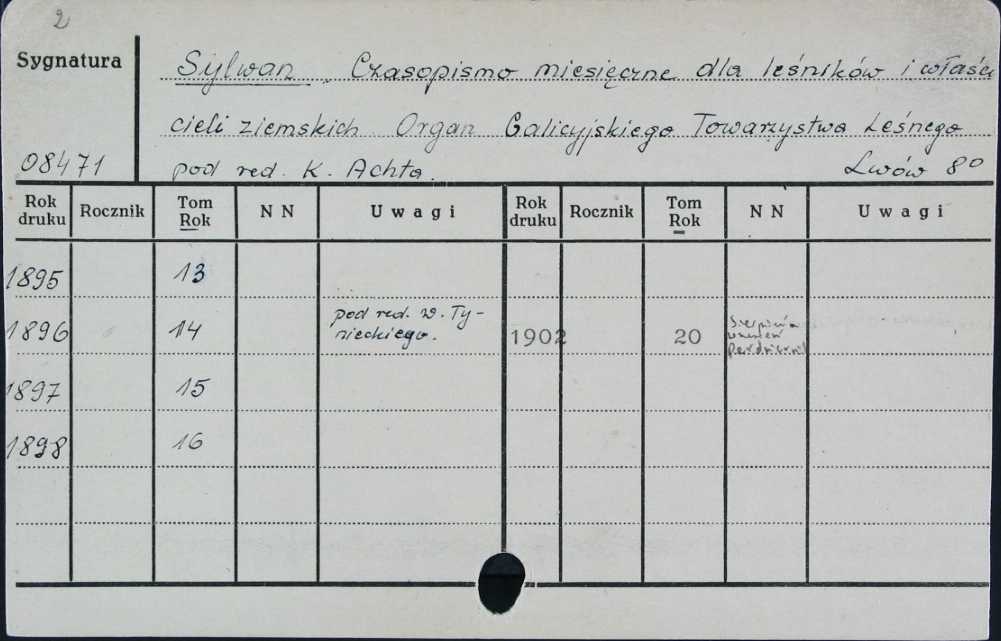 2
Sygnatura
Sylwan. Czasopismo miesięczne dla leśników i właści
cieli ziemskich Organ Galicyjskiego Towarzystwa Leśnego
08471 pod red. K. Achta. Lwów 8°
Rok druku Rocznik Tom Rok N N Uwagi Rok druku Rocznik Tom Rok N N Uwagi
1895 13
1896 14 pod red. W. Ty-
nieckiego. 1902 20 Sierpień
wrzesień
październik
1897 15
1898 16